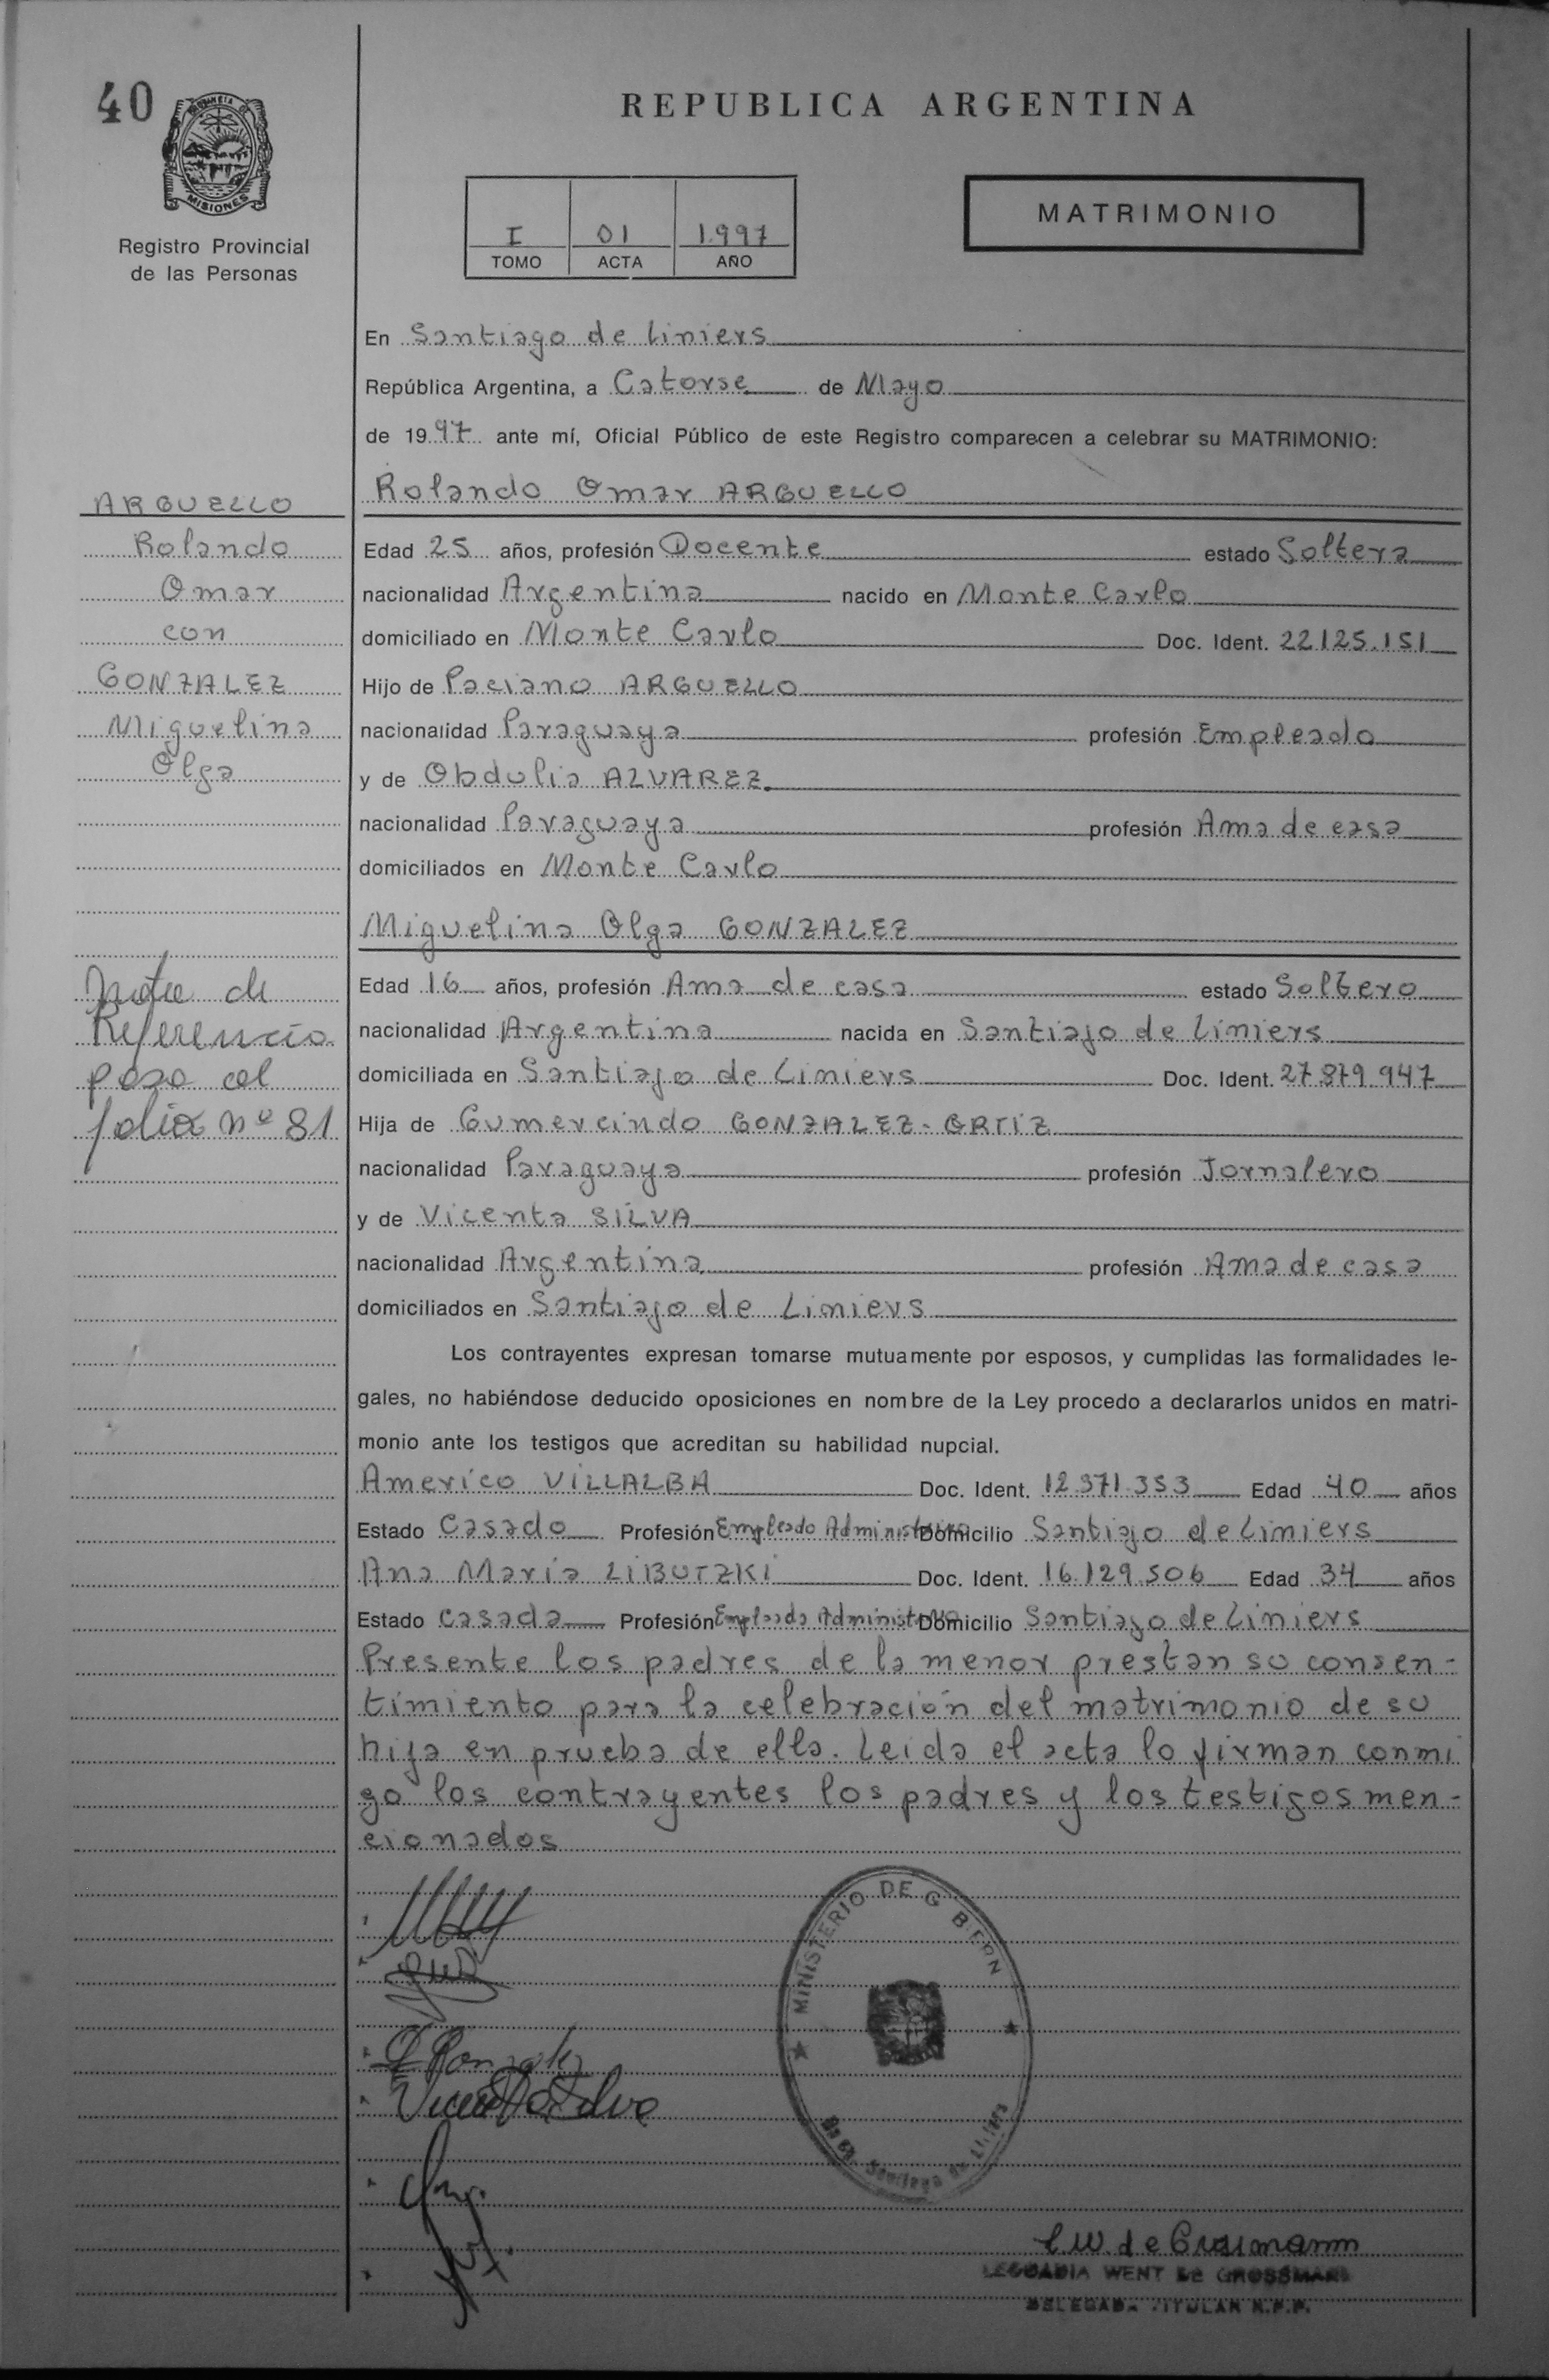 40
PROVINCIA DE
MISIONES
Registro Provincial
de las Personas
REPUBLICA ARGENTINA
I 01 1.997
TOMO ACTA AÑO
MATRIMONIO
En Santiago de Liniers
República Argentina, a Catorse de Mayo
de 1997 ante mí, Oficial Público de este Registro comparecen a celebrar su MATRIMONIO:
Rolando Omar ARGUELLO
Edad 25 años, profesión Docente estado Soltera
nacionalidad Argentina nacido en Monte Carlo
domiciliado en Monte Carlo Doc. Ident. 22.125.151
Hijo de Paciano ARGUELLO
nacionalidad Paraguaya profesión Empleado
y de Obdulia ALVAREZ.
nacionalidad Paraguaya profesión Ama de casa
domiciliados en Monte Carlo
Miguelina Olga GONZALEZ
Edad 16 años, profesión Ama de casa estado Soltero
nacionalidad Argentina nacida en Santiago de Liniers
domiciliada en Santiago de Liniers Doc. Ident. 27.879.947
Hija de Gumercindo GONZALEZ - ORTIZ
nacionalidad Paraguaya profesión Jornalero
y de Vicenta SILVA
nacionalidad Argentina profesión Ama de casa
domiciliados en Santiago de Liniers
Los contrayentes expresan tomarse mutuamente por esposos, y cumplidas las formalidades le-
gales, no habiéndose deducido oposiciones en nombre de la Ley procedo a declararlos unidos en matri-
monio ante los testigos que acreditan su habilidad nupcial.
Americo VILLALBA Doc. Ident. 12.371.353 Edad 40 años
Estado Casado Profesión Empleado Administrativo Domicilio Santiago de Liniers
Ana María LIBUTZKI Doc. Ident. 16.129.506 Edad 34 años
Estado Casada Profesión Empleada Domicilio Santiago de Liniers
Presente los padres de la menor prestan su consen-
timiento para la celebración del matrimonio de su
hija en prueba de ella. Leida el acta lo firman conmi
go los contrayentes los padres y los testigos men-
cionados
ARGUELLO
Rolando
Omar
con
GONZALEZ
Miguelina
Olga
Nota de
Referencia
pasa al
folio nº 81
Gonzalez
Vicenta Silva
MINISTERIO DE G BIERN
Santiago de Liniers
WENT DE GROSSMANN
DELEGADA TITULAR R.P.P.